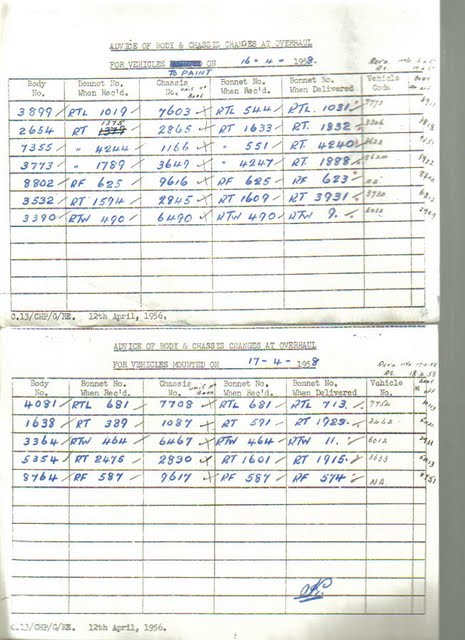 ADVICE OF BODY & CHASSIS CHANGES AT OVERHAUL
FOR VEHICLES MOUNTED ON 16-4-1958.
TO PAINT
Body No. Bonnet No. When Rec'd. Chassis No. Bonnet No. When Rec'd. Bonnet No. When Delivered Vehicle Code
3899 RTL 1019 7603 RTL 544 RTL. 1031
2654 RT 1375 1379 2865 RT 1633 RT. 1832
7355 " 4244 1166 " 551 RT. 4240
3773 " 1789 3649 " 4247 RT. 1888
8802 RF 625 9616 RF 625 RF 623 NA
3532 RT 1594 2845 RT 1609 RT 3931
3390 RTW 490 6490 RTW 490 RTW 9.
C.13/CHP/G/RE. 12th April, 1956.
ADVICE OF BODY & CHASSIS CHANGES AT OVERHAUL
FOR VEHICLES MOUNTED ON 17-4-1958
Body No. Bonnet No. When Rec'd. Chassis No. Bonnet No. When Rec'd. Bonnet No. When Delivered Vehicle No.
4081 RTL 681 7708 RTL 681 RTL 713
1638 RT 389 1087 RT 591 RT 1929
3364 RTW 464 6467 RTW 464 RTW 11. 6012
5354 RT 2476 2830 RT 1601 RT 1915 3633
8764 RF 587 9617 RF 587 RF 574 NA
C.13/CHP/G/RE. 12th April, 1956.